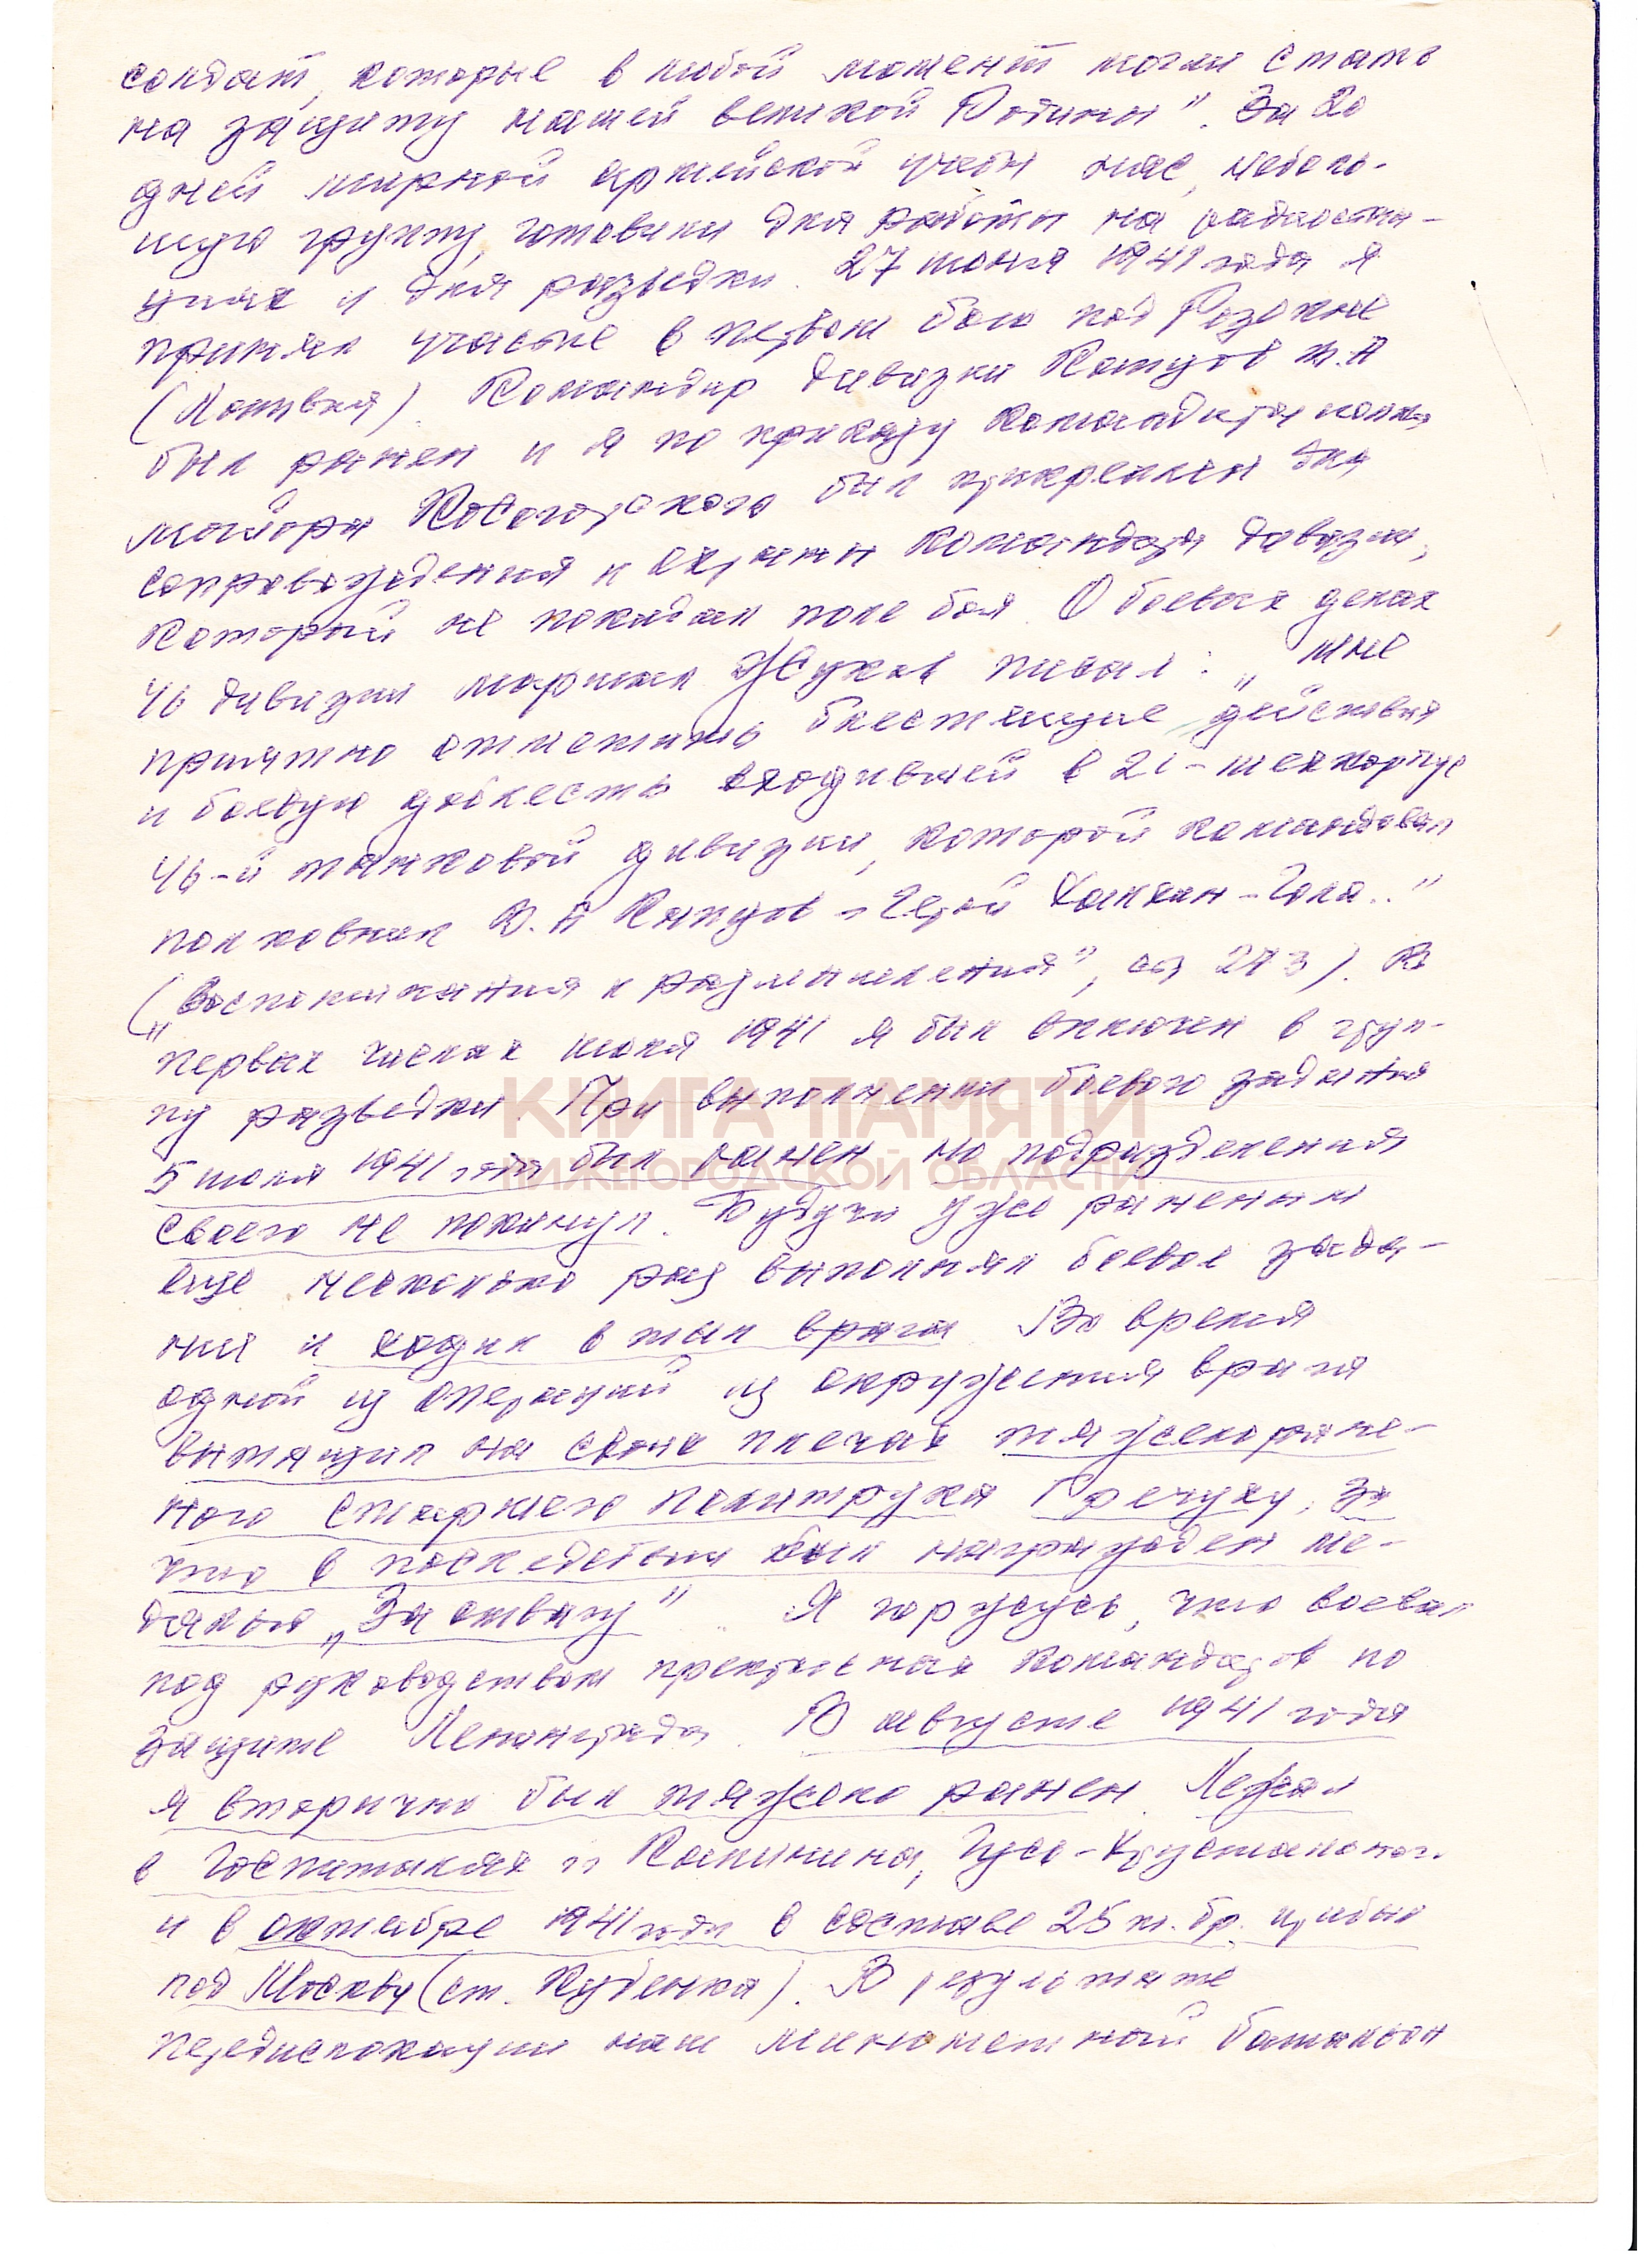 солдат, которые в любой момент могли стать
на защиту нашей великой Родины". За 20
дней мирной армейской учебы нас, неболь-
шую группу, готовили для работы на радиостан-
циях и для разведки. 27 июня 1941 года я
принял участие в первом бою под Резекне
(Латвия). Командир дивизии Копцов В.А
был ранен и я по приказу командира полка
майора был прикреплен для
сопровождения и охраны командира дивизии,
который не покидал поле боя. О боевых делах
46 дивизии маршал Жуков писал: „мне
приятно отметить блестящие действия
и боевую доблесть входившей в 21-мехкорпус
46-й танковой дивизии, которой командовал
полковник В.А Копцов - Герой Халхин-Гола.."
(„Воспоминания и размышления", стр 273). В
первых числах июля 1941 я был включен в груп-
пу разведки. При выполнении боевого задания
КНИГА ПАМЯТИ
5 июля 1941 года был ранен, но подразделения
НИЖЕГОРОДСКОЙ ОБЛАСТИ
своего не покинул. Будучи уже раненым
еще несколько раз выполнял боевое зада-
ния и ходил в тыл врага. Во время
одной из операций из окружения врага
вытащил на своих плечах тяжелоране-
ного старшего политрука Гречуху, за
что в последствии был награжден ме-
далью „За отвагу". Я горжусь, что воевал
под руководством прекрасных командиров по
защите Ленинграда. В августе 1941 года
я вторично был тяжело ранен. Лежал
в госпиталях г. Калинина, Гусь-Хрустального
и в октябре 1941 года в составе 25 т. бр. прибыл
под Москву (ст. Кубинка). В результате
передислокации наш минометный батальон